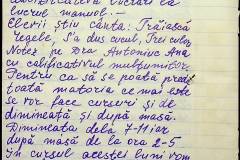 lucrul manual.
Elevii știu cânta: Trăiască
regele, S'a dus cucul, Trei culori
Notez pe Dra Antoniuc Ana
cu calificativul mulțumitor.
Pentru ca să se poate preda
toată materia ce mai este
se vor face cursuri și de
dimineață și după masă.
Dimineața dela 7-11 iar
după masă de la ora 2-5
În cursul acestei luni vom